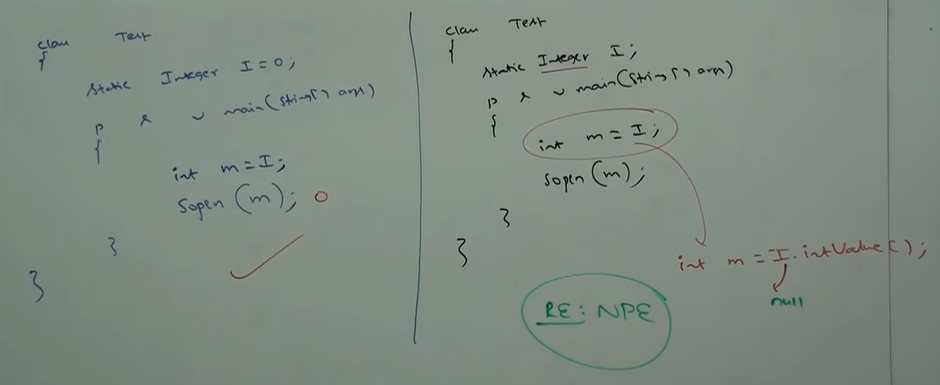 class Test
{
static Integer I = 0;
p s v main(String[] args)
{
int m = I;
Sopln(m); 0
}
}
class Test
{
static Integer I;
p s v main(String[] args)
{
int m = I;
Sopln(m);
}
}
int m = I.intValue();
null
RE: NPE